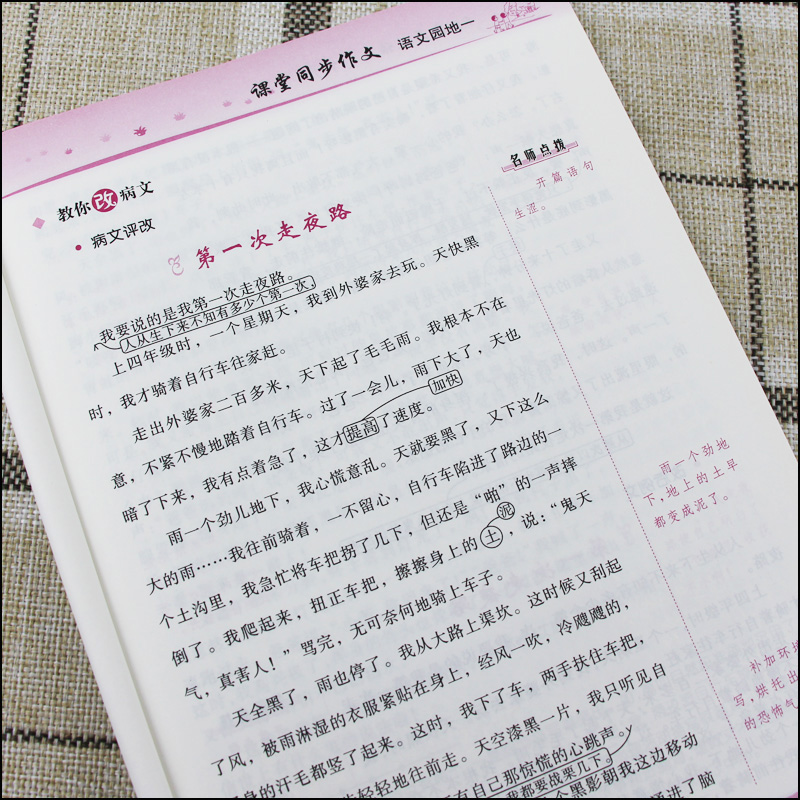 课堂同步作文 语文园地一
教你改病文
病文评改
第一次走夜路
我要说的是我第一次走夜路。
人从生下来不知有多少个第一次,
上四年级时，一个星期天，我到外婆家去玩。天快黑
时，我才骑着自行车往家赶。
走出外婆家二百多米，天下起了毛毛雨。我根本不在
意，不紧不慢地踏着自行车。过了一会儿，雨下大了，天也
加快
暗了下来，我有点着急了，这才提高了速度。
雨一个劲儿地下，我心慌意乱。天就要黑了，又下这么
大的雨……我往前骑着，一不留心，自行车陷进了路边的一
个土沟里，我急忙将车把拐了几下，但还是“啪”的一声摔
泥
倒了。我爬起来，扭正车把，擦擦身上的土，说：“鬼天
气，真害人！”骂完，无可奈何地骑上车子。
天全黑了，雨也停了。我从大路上渠坎。这时候又刮起
了风，被雨淋湿的衣服紧贴在身上，经风一吹，冷飕飕的，
身的汗毛都竖了起来。这时，我下了车，两手扶住车把，
轻轻地往前走。天空漆黑一片，我只听见自
有自己那惊慌的心跳声。
我都要战栗几下。
个黑影朝我这边移动
进了脑
名师点拨
开篇语句
生涩。
雨一个劲地
下，地上的土早
都变成泥了。
补加环境
写，烘托出
的恐怖气